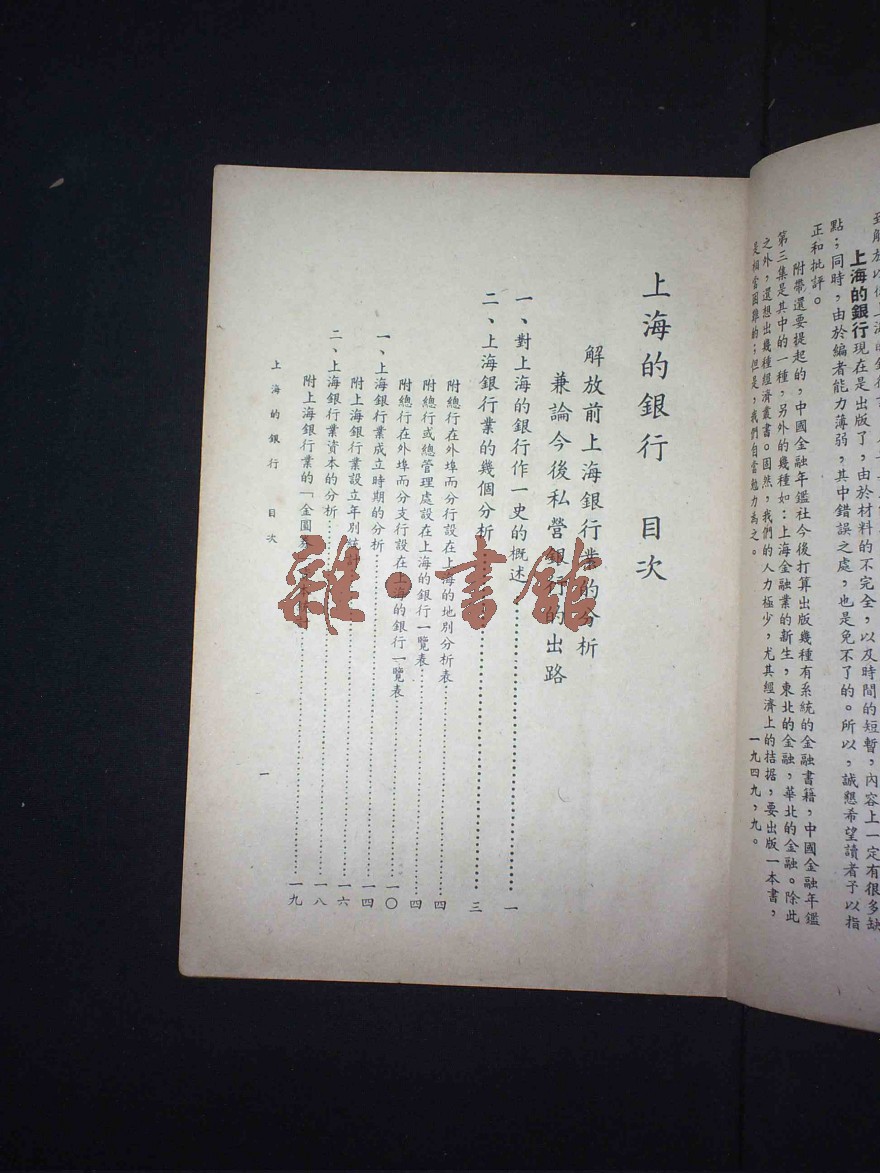 上海的銀行現在是出版了，由於材料的不完全，以及時間的短暫，內容上一定有很多缺
點；同時，由於編者能力薄弱，其中錯誤之處，也是免不了的。所以，誠懇希望讀者予以指
正和批評。
附帶還要提起的，中國金融年鑑社今後打算出版幾種有系統的金融書籍，中國金融年鑑
第三集是其中的一種，另外的幾種如：上海金融業的新生，東北的金融，華北的金融。除此
之外，還想出幾種經濟叢書。固然，我們的人力極少，尤其經濟上的拮据，要出版一本書，
是相當困難的；但是，我們自當勉力為之。
一九四九，九。
上海的銀行 目次
解放前上海銀行業的分析
兼論今後私營銀行的出路
一、對上海的銀行作一史的概述……一
二、上海銀行業的幾個分析……三
附總行在外埠而分行設在上海的地別分析表……四
附總行或總管理處設在上海的銀行一覽表……四
附總行在外埠而分支行設在上海的銀行一覽表……一〇
一、上海銀行業成立時期的分析……一四
附上海銀行業設立年別統計……一六
二、上海銀行業資本的分析……一八
附上海銀行業的「金圓券……一九
上海的銀行 目次
一
雜·書館